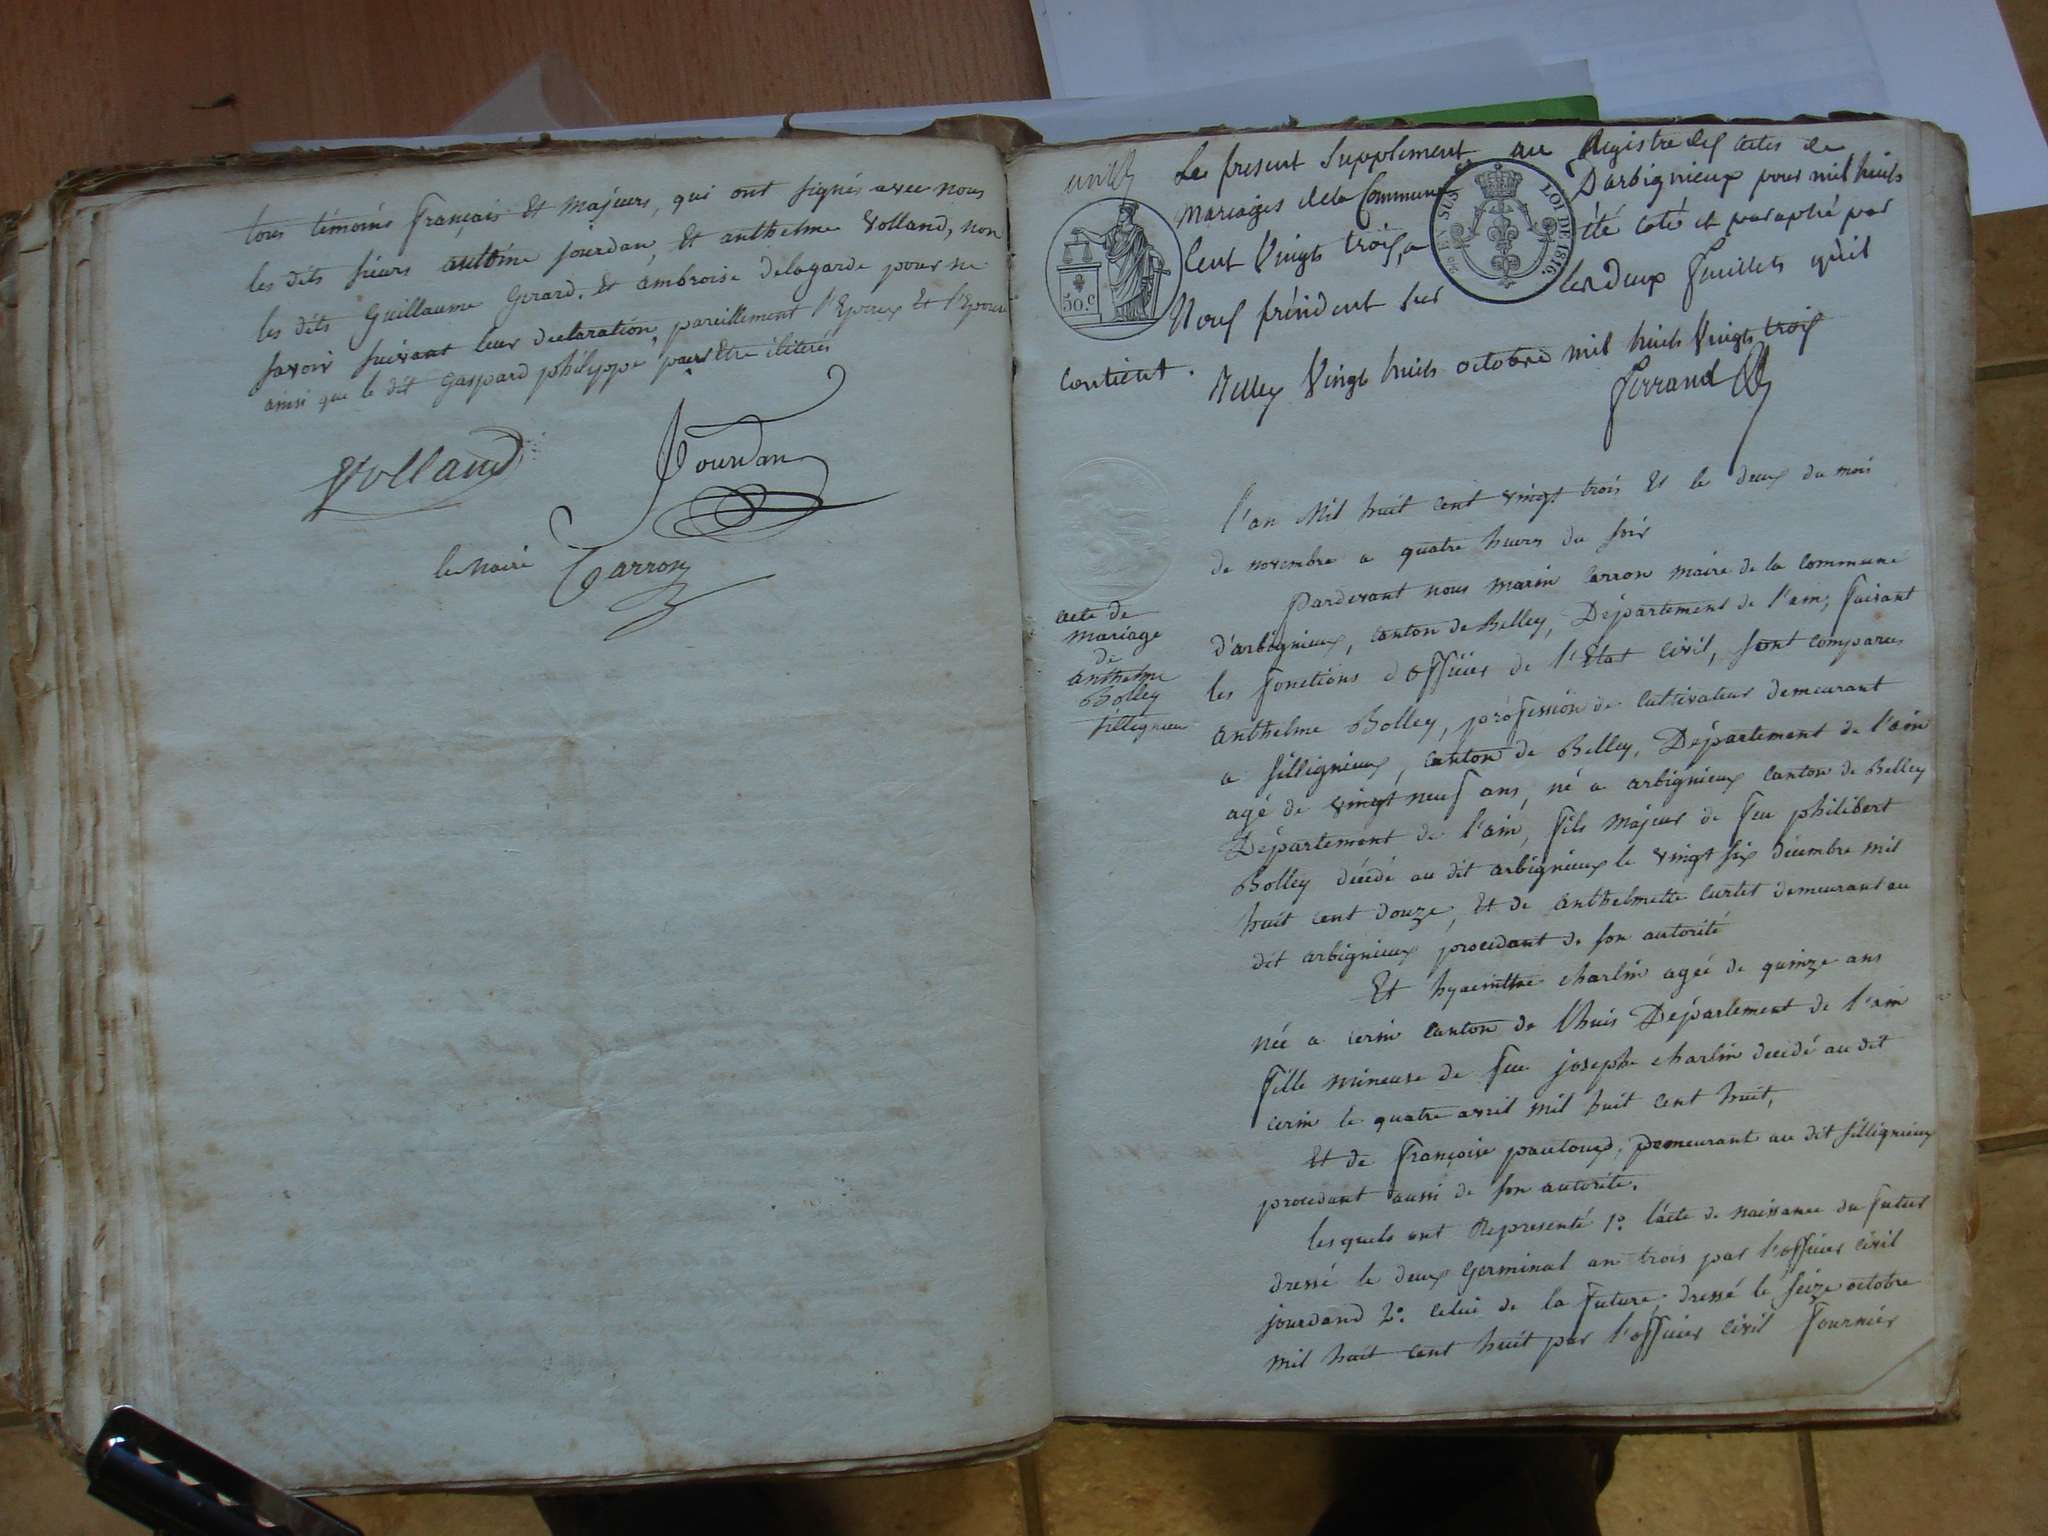 tous témoins français et majeurs, qui ont signés avec nous
les dits sieurs antoine jourdan, et anthelme Volland, non
les dits Guillaume Girard, et ambroise délagarde pour ne
savoir suivant leur declaration, pareillement l'Epoux Et l'Epouse
ainsi que le dit gaspard philippe pour Etre iliterés
Volland
Jourdan
le Maire Carron
Le present Supplement au Registre des actes de
Mariages de la Commune Darbignieux pour mil huit
Cent Vingt trois, a été coté et paraphé par
Nous président sur les deux feuillets qu'il
contient.
Belley Vingt huit octobre mil huit Vingt trois
ferrand
50.c
EN SUS
LOI DE 1816.
l'an Mil huit cent vingt trois Et le deux du mois
de novembre a quatre heures du soir
pardevant nous marin Carron maire de la commune
d'arbignieux, canton de Belley, Département de l'ain, faisant
les fonctions d'officier de l'Etat civil, sont comparus
acte de
mariage
de
anthelme
Bolley
sillignieu
anthelme Bolley, profession de cultivateur demeurant
a sillignieux, canton de Belley, Département de l'ain
agé de vingt neuf ans, né a arbignieux canton de Belley
Département de l'ain, fils majeur de feu philibert
Bolley décédé au dit arbignieux le vingt six décembre mil
huit cent douze, Et de anthelmette curtet demeurant au
dit arbignieux procedant de son autorité
Et hyacinthe charlin agée de quinze ans
née a cerin canton de l'huis Département de l'ain
fille mineuse de feu josephe charlin decédé au dit
cerin le quatre avril mil huit cent huit,
Et de françoise pautoux, demeurant au dit sillignieux
procedant aussi de son autorité.
lesquels ont Representé 1º. l'acte de naissance du futur
dressé le deux germinal an trois par l'officier civil
jourdand 2º. celui de la future, dressé le seize octobre
mil huit cent huit par l'officier civil fournier